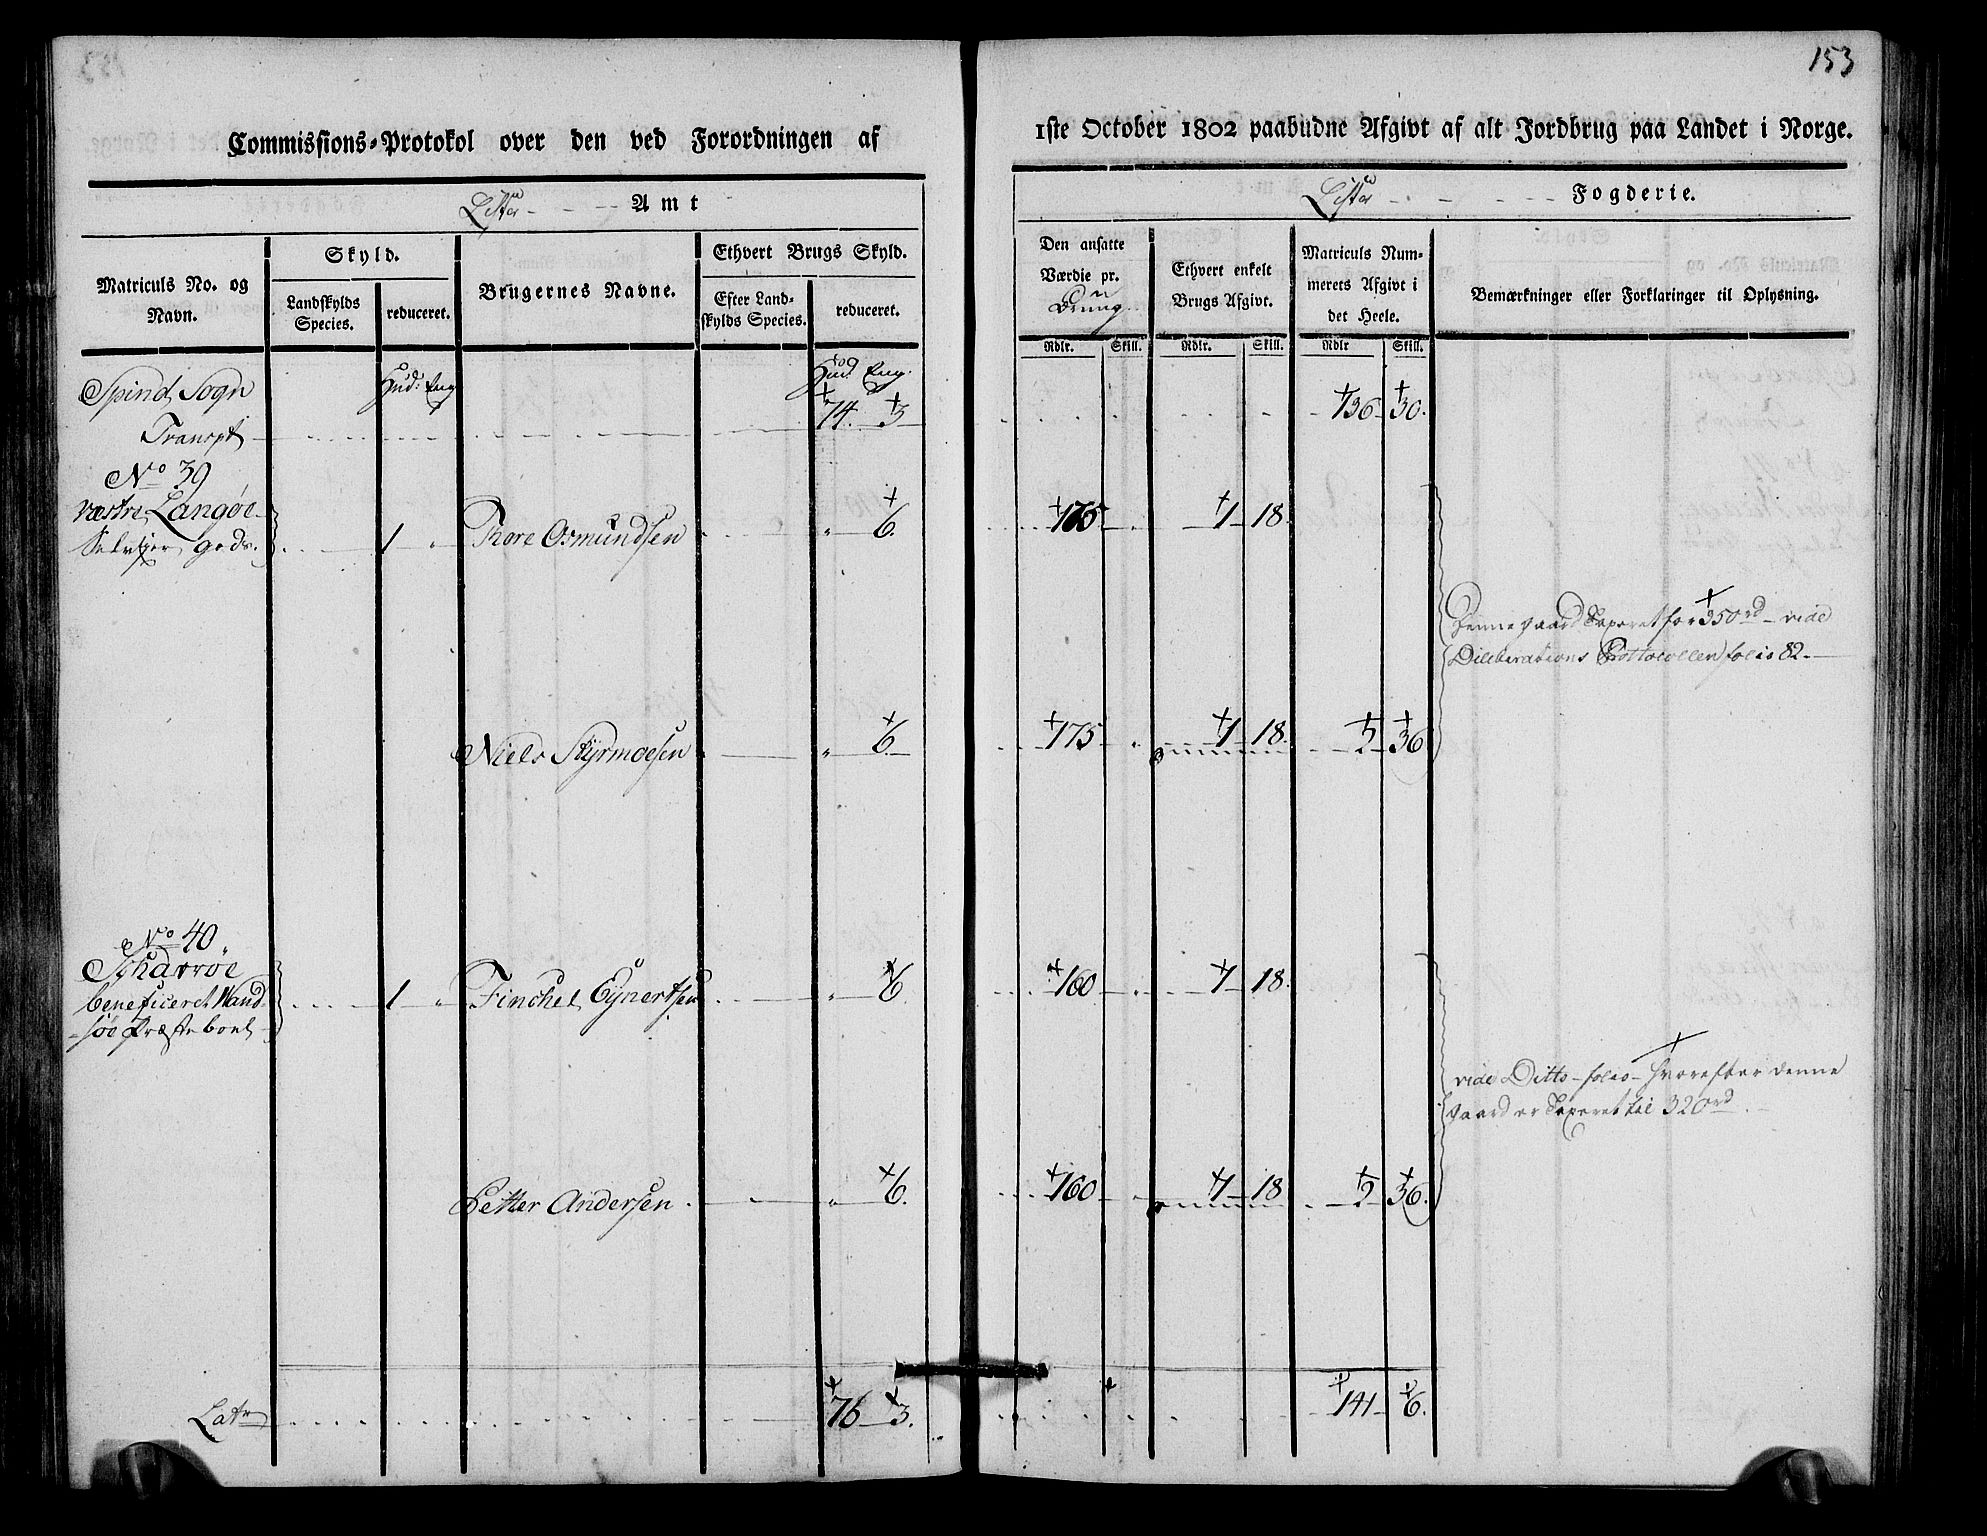 153
Commissions-Protokol over den ved Forordningen af
1ste October 1802 paabudne Afgivt af alt Jordbrug paa Landet i Norge.
Lister Amt
Lister Fogderie.
Matriculs No. og Navn.
Skyld.
Landskylds Species.
reduceret.
Brugernes Navne.
Ethvert Brugs Skyld.
Efter Landskylds Species.
reduceret.
Den ansatte Værdie pr. Brug
Ethvert enkelt Brugs Afgivt.
Matriculs Nummerets Afgivt i det Heele.
Bemærkninger eller Forklaringer til Oplysning.
Rdlr. Skill. Rdlr. Skill. Rdlr Skill.
Spind Sogn Hud: Eng Hud Eng.
Transpt 74. 3 136 30.
No 39
væstre Langøe
Selvejer gods. 1 " Thore Osmundsen " 6. 175 1 18.
Denne gaard Taxeret for 350 rd - vide
Diliberations Prottocollen folio 82.
Niels Styrmoesen " 6. 175 1 18. 2 36
No 40
Scharrøe
beneficeret Wand
søe Præstebord 1 " Finchel Eynertsen " 6 160 1 18.
vide Ditto - folio - hvorefter denne
gaard er Taxeret til 320 rd.
Petter Andersen " 6. 160 1 18 2 36.
Latr 76 3. 141 6.